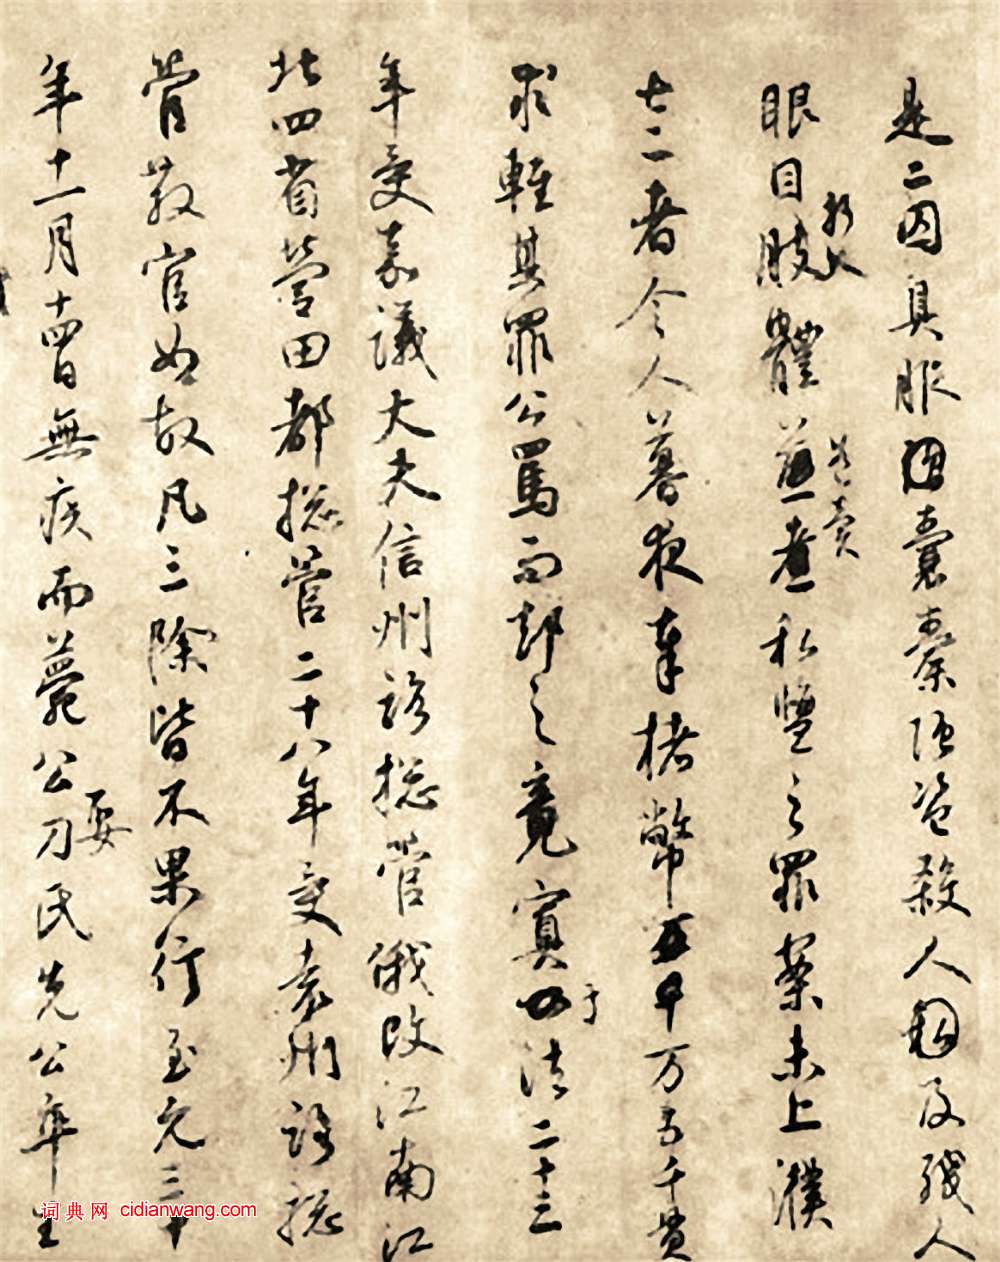 是二囚具服囊橐强盗殺人及殘人
眼目肢體煮私鹽之罪案未上濮
折人
若賣
七二者令人暮夜奉楮幣万五千貫
求輕其罪公罵而却之竟寘法二十三
于
年受嘉議大夫信州路總管俄改江南江
北四省營田都總管二十八年受袁州路總
管散官如故凡三除皆不果行至元三十
年十一月十四日無疾而薨公刁氏先公卒生
娶
词典网 cidianwang.com